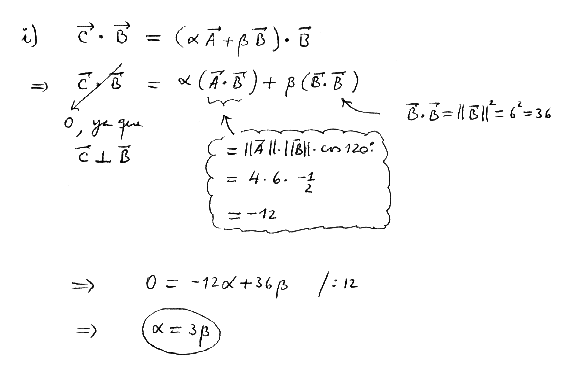 i) C⃗ · B⃗ = (α A⃗ + β B⃗) · B⃗
⇒ C⃗ · B⃗ = α (A⃗ · B⃗) + β (B⃗ · B⃗)
0, ya que
C⃗ ⊥ B⃗
B⃗ · B⃗ = ||B⃗||² = 6² = 36
= ||A⃗|| · ||B⃗|| · cos 120°
= 4 · 6 · -1/2
= -12
⇒ 0 = -12α + 36β /: 12
⇒ α = 3β